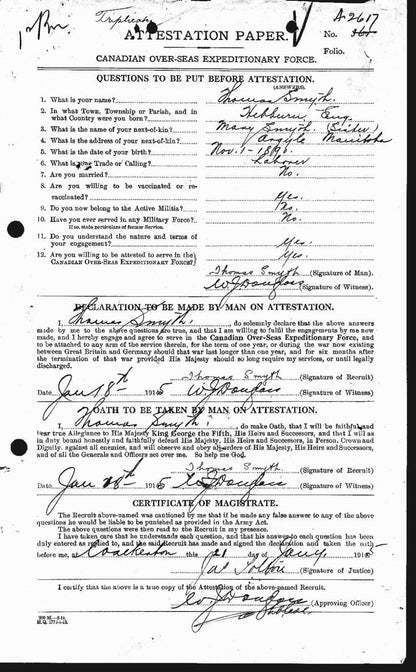 Triplicate
ATTESTATION PAPER.
A-2617
No.
Folio.
CANADIAN OVER-SEAS EXPEDITIONARY FORCE.
QUESTIONS TO BE PUT BEFORE ATTESTATION.
(ANSWERS)
1. What is your name? Thomas Smyth.
2. In what Town, Township or Parish, and in
what Country were you born? Hebburn, Eng.
3. What is the name of your next-of-kin? Mary Smyth (Sister)
4. What is the address of your next-of-kin? Argyle Manitoba
5. What is the date of your birth? Nov. 1-1892.
6. What is your Trade or Calling? Laborer
7. Are you married? No.
8. Are you willing to be vaccinated or re-
vaccinated? Yes.
9. Do you now belong to the Active Militia? No.
10. Have you ever served in any Military Force? No.
If so, state particulars of former Service.
11. Do you understand the nature and terms of
your engagement? Yes.
12. Are you willing to be attested to serve in the
CANADIAN OVER-SEAS EXPEDITIONARY FORCE? Yes.
Thomas Smyth (Signature of Man).
W J Douglass (Signature of Witness).
DECLARATION TO BE MADE BY MAN ON ATTESTATION.
I, Thomas Smyth, do solemnly declare that the above answers
made by me to the above questions are true, and that I am willing to fulfil the engagements by me now
made, and I hereby engage and agree to serve in the Canadian Over-Seas Expeditionary Force, and
to be attached to any arm of the service therein, for the term of one year, or during the war now existing
between Great Britain and Germany should that war last longer than one year, and for six months after
the termination of that war provided His Majesty should so long require my services, or until legally
discharged.
Thomas Smyth (Signature of Recruit)
Date Jan 1915 W J Douglass (Signature of Witness)
OATH TO BE TAKEN BY MAN ON ATTESTATION.
I, Thomas Smyth, do make Oath, that I will be faithful and
bear true Allegiance to His Majesty King George the Fifth, His Heirs and Successors, and that I will as
in duty bound honestly and faithfully defend His Majesty, His Heirs and Successors, in Person, Crown and
Dignity, against all enemies, and will observe and obey all orders of His Majesty, His Heirs and Successors,
and of all the Generals and Officers set over me. So help me God.
Thomas Smyth (Signature of Recruit)
Date Jan 1915 W J Douglass (Signature of Witness)
CERTIFICATE OF MAGISTRATE.
The Recruit above-named was cautioned by me that if he made any false answer to any of the above
questions he would be liable to be punished as provided in the Army Act.
The above questions were then read to the Recruit in my presence.
I have taken care that he understands each question, and that his answer to each question has been
duly entered as replied to, and the said Recruit has made and signed the declaration and taken the oath
before me, at this day of Jany 1915
(Signature of Justice)
I certify that the above is a true copy of the Attestation of the above-named Recruit.
W J Douglass (Approving Officer)